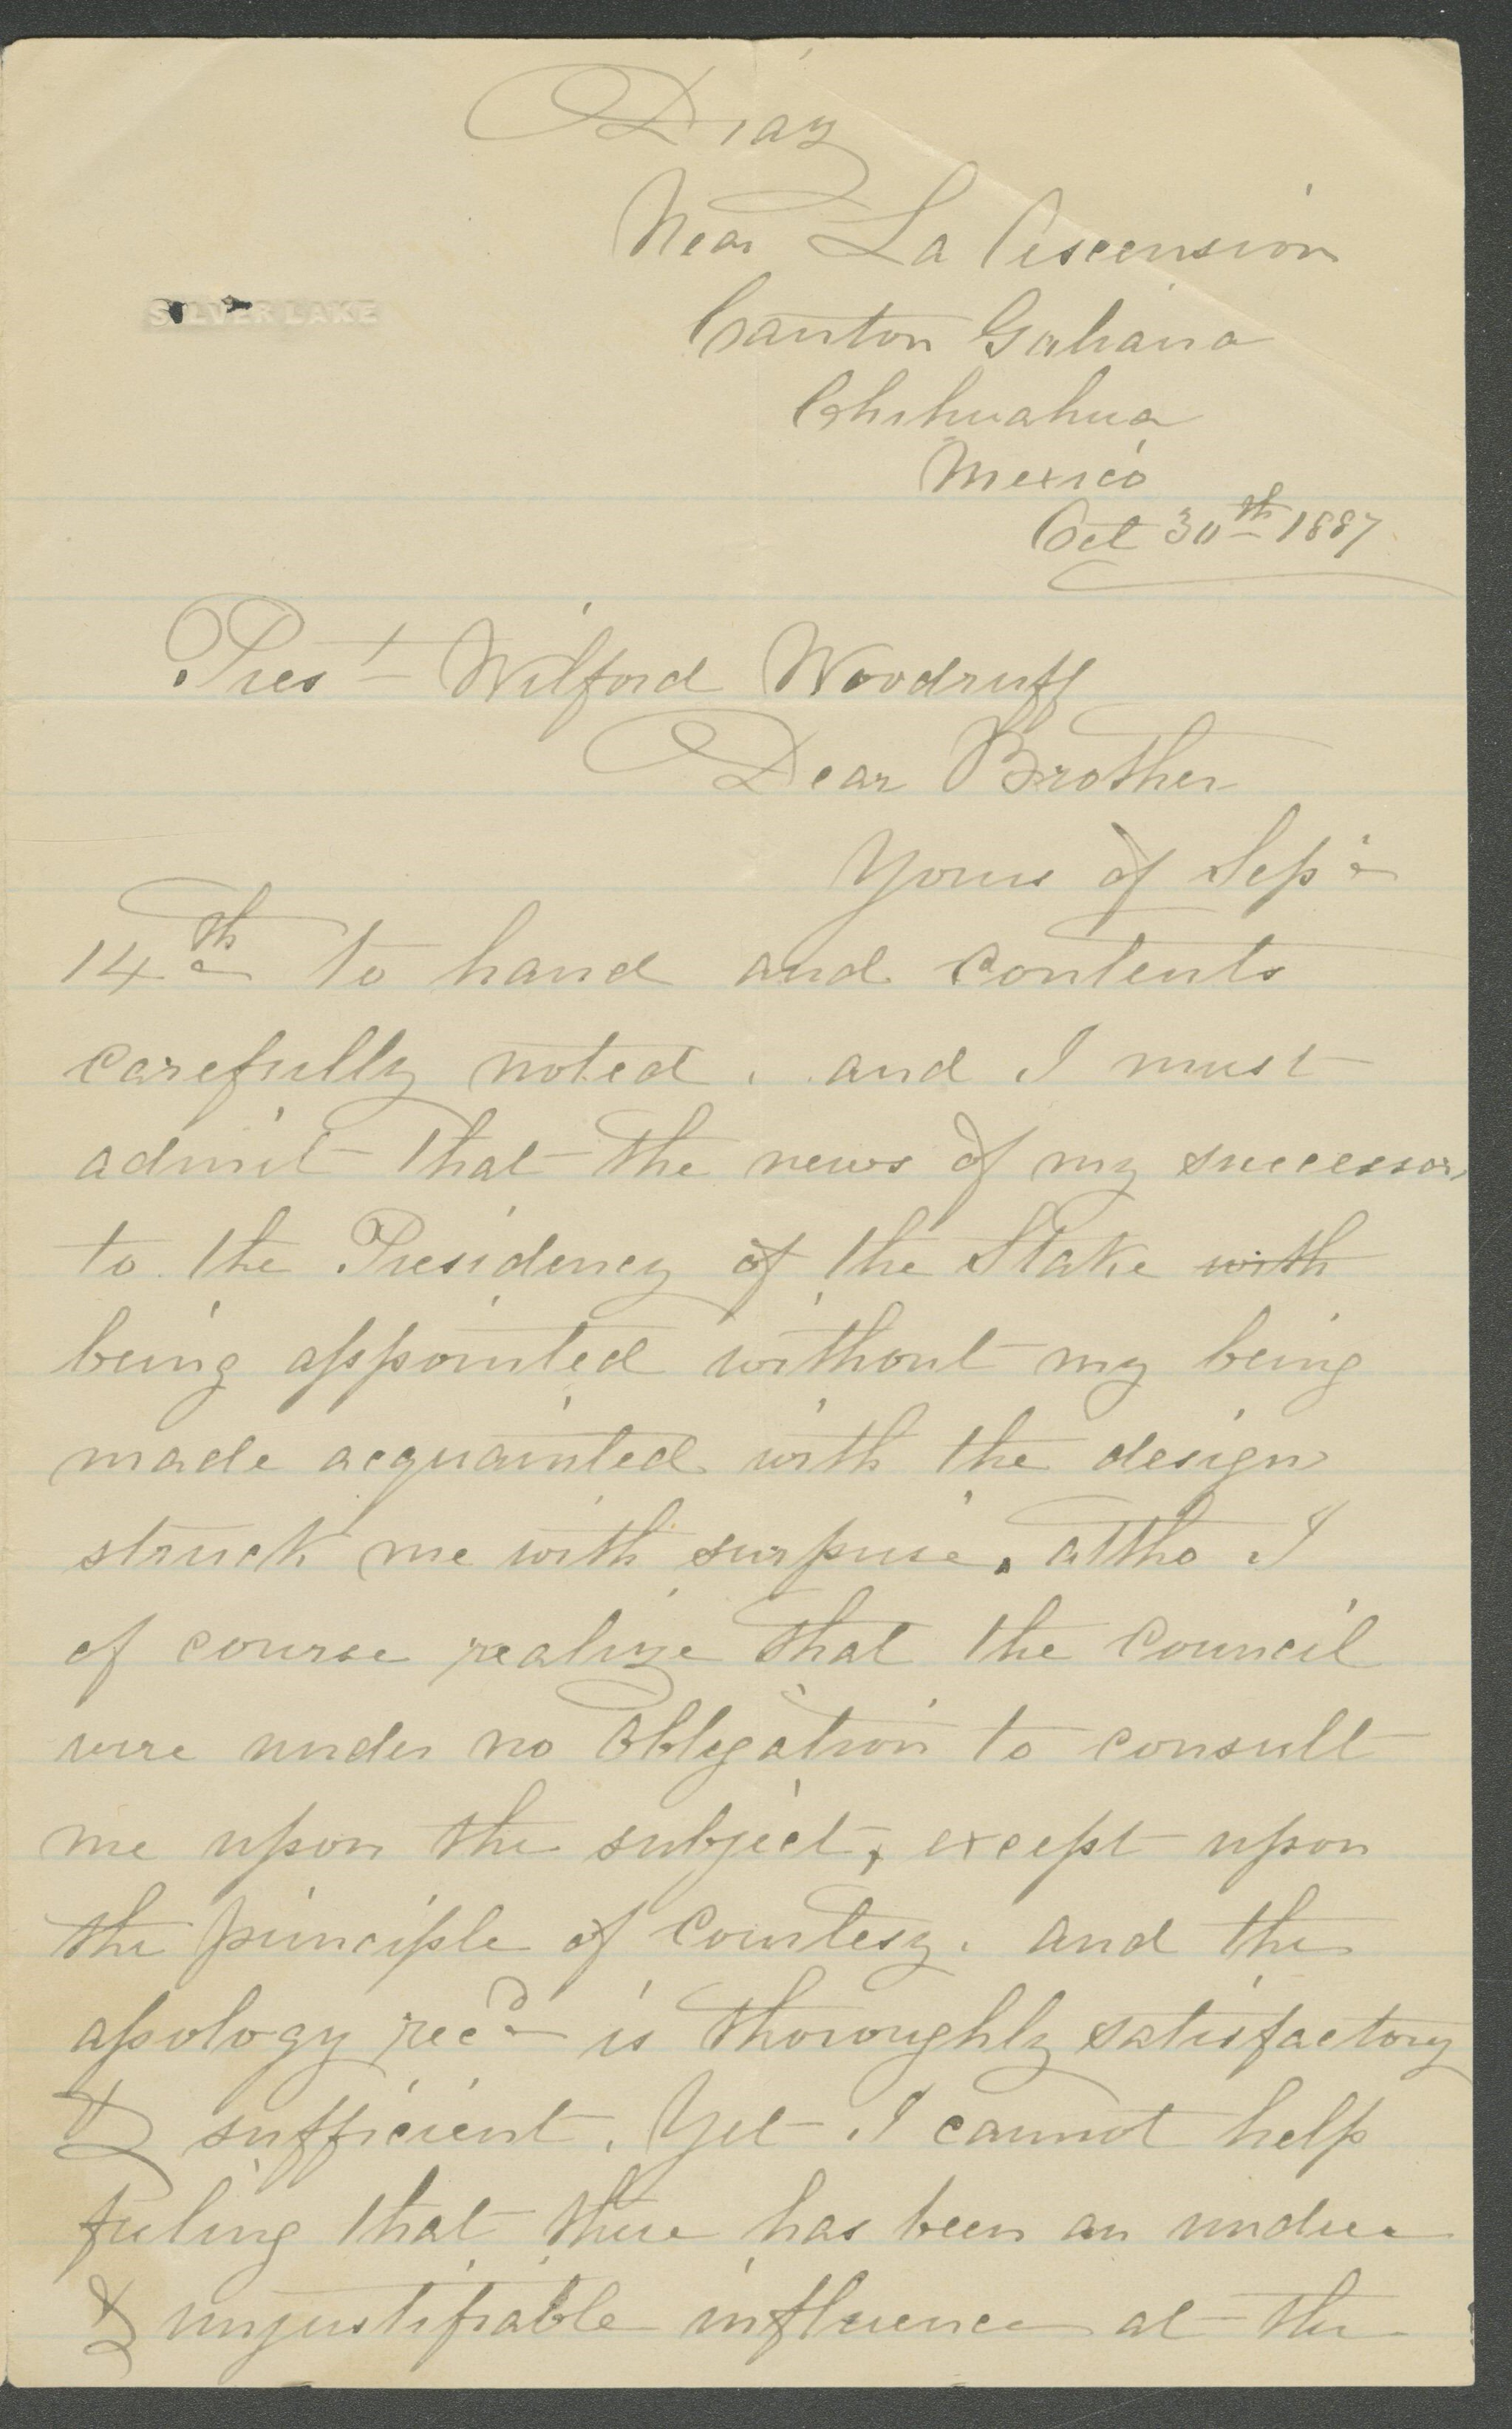 Diaz
Near La Ascension
SILVER LAKE
Canton Galiana
Chihuahua
Mexico
Oct 30th 1887
Pres't Wilford Woodruff
Dear Brother
Yours of Sep.
14th to hand and contents
carefully noted. and I must
admit that the news of my successor,
to the Presidency of the Stake with
being appointed without my being
made acquainted with the design
struck me with surprise. altho I
of course realize that the Council
were under no obligation to consult
me upon the subject, except upon
the principle of Courtesy. and the
apology rec'd is thoroughly satisfactory
& sufficient. Yet I cannot help
feeling that there has been an undue
& unjustifiable influence at the